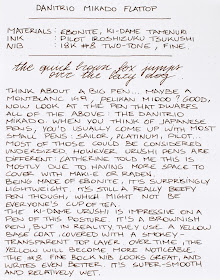 DANITRIO MIKADO FLATTOP
MATERIALS: EBONITE, KI-DAME TAMENURI
INK PILOT IROSHIZUKU TSUKUSHI
NIB 18K #8 TWO-TONE, FINE
the quick brown fox jumps
over the lazy dog
THINK ABOUT A BIG PEN... MAYBE A
MONTBLANC 149, PELIKAN M1000? GOOD,
NOW LOOK AT THE PEN THAT DWARFS
ALL OF THE ABOVE: THE DANITRIO
MIKADO. WHEN YOU THINK OF JAPANESE
PENS, YOU'D USUALLY COME UP WITH MOSTLY
SMALL PENS: SAILOR, PLATINUM, PILOT...
MOST OF THOSE COULD BE CONSIDERED
UNDERSIZED. HOWEVER URUSHI PENS ARE
DIFFERENT: CATHERINE TOLD ME THIS IS
MOSTLY DUE TO HAVING MORE SPACE TO
COVER WITH MAKI-E OR RADEN.
BEING MADE OF EBONITE, IT'S SURPRISINGLY
LIGHTWEIGHT. IT'S STILL A REALLY BEEFY
PEN THOUGH, WHAT MIGHT NOT BE
EVERYONE'S CUP OF TEA.
THE KI-DAME URUSHI IS IMPRESSIVE ON A
PEN OF THIS POSTURE. IT'S A BROWNISH
PEN, BUT IN REALITY THEY USE A YELLOW
BASE COAT, COVERED WITH A SMOKEY-
TRANSPARENT TOP LAYER. OVER TIME, THE
YELLOW WILL BECOME MORE NOTICEABLE.
THE #8 FINE BOCK NIB LOOKS GREAT, AND
WRITES EVEN BETTER. IT'S SUPER-SMOOTH
AND RELATIVELY WET.